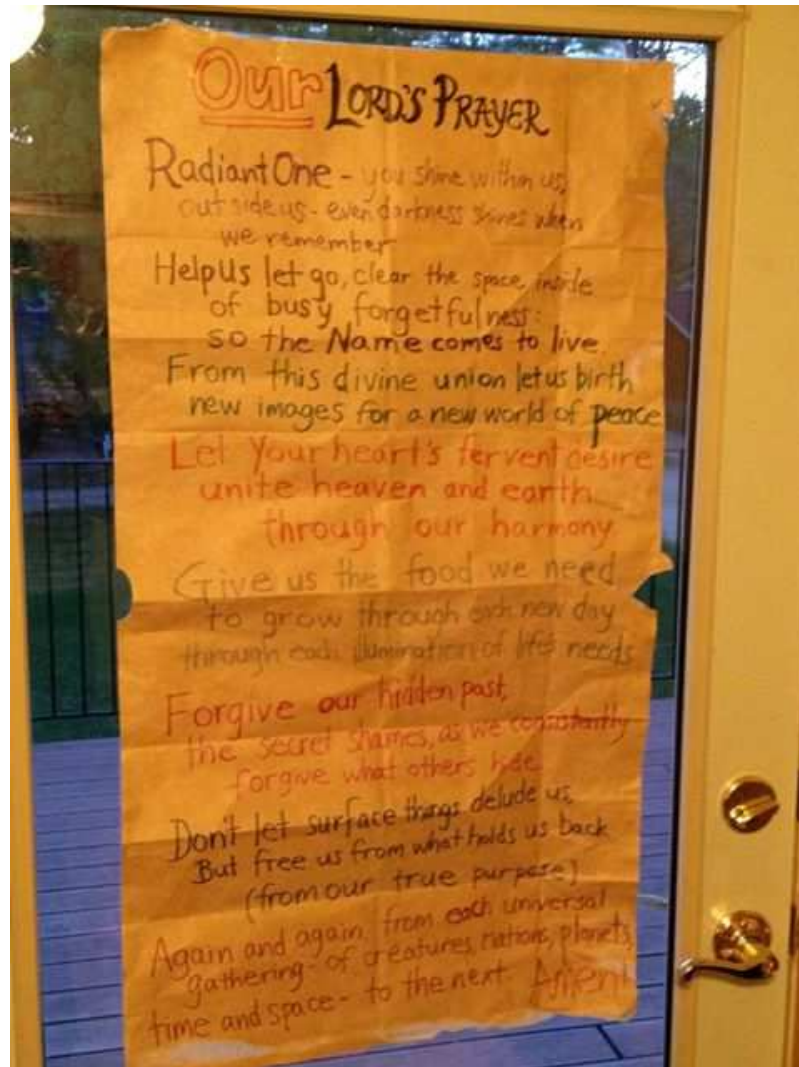 Our LORD'S PRAYER
Radiant One - you shine within us,
outside us - even darkness shines when
we remember
Help us let go, clear the space inside
of busy forgetfulness:
so the Name comes to live.
From this divine union let us birth
new images for a new world of peace
Let Your heart's fervent desire
unite heaven and earth
through our harmony
Give us the food we need
to grow through each new day
through each illumination of life's needs
Forgive our hidden past,
the secret shames, as we consistantly
forgive what others hide
Don't let surface things delude us,
But free us from what holds us back
(from our true purpose)
Again and again, from each universal
gathering - of creatures, nations, planets,
time and space - to the next. Amen!